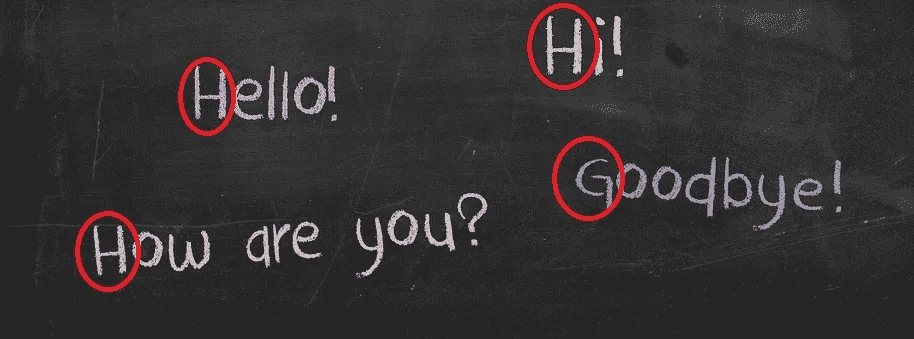 Hi!
Hello!
Goodbye!
How are you?